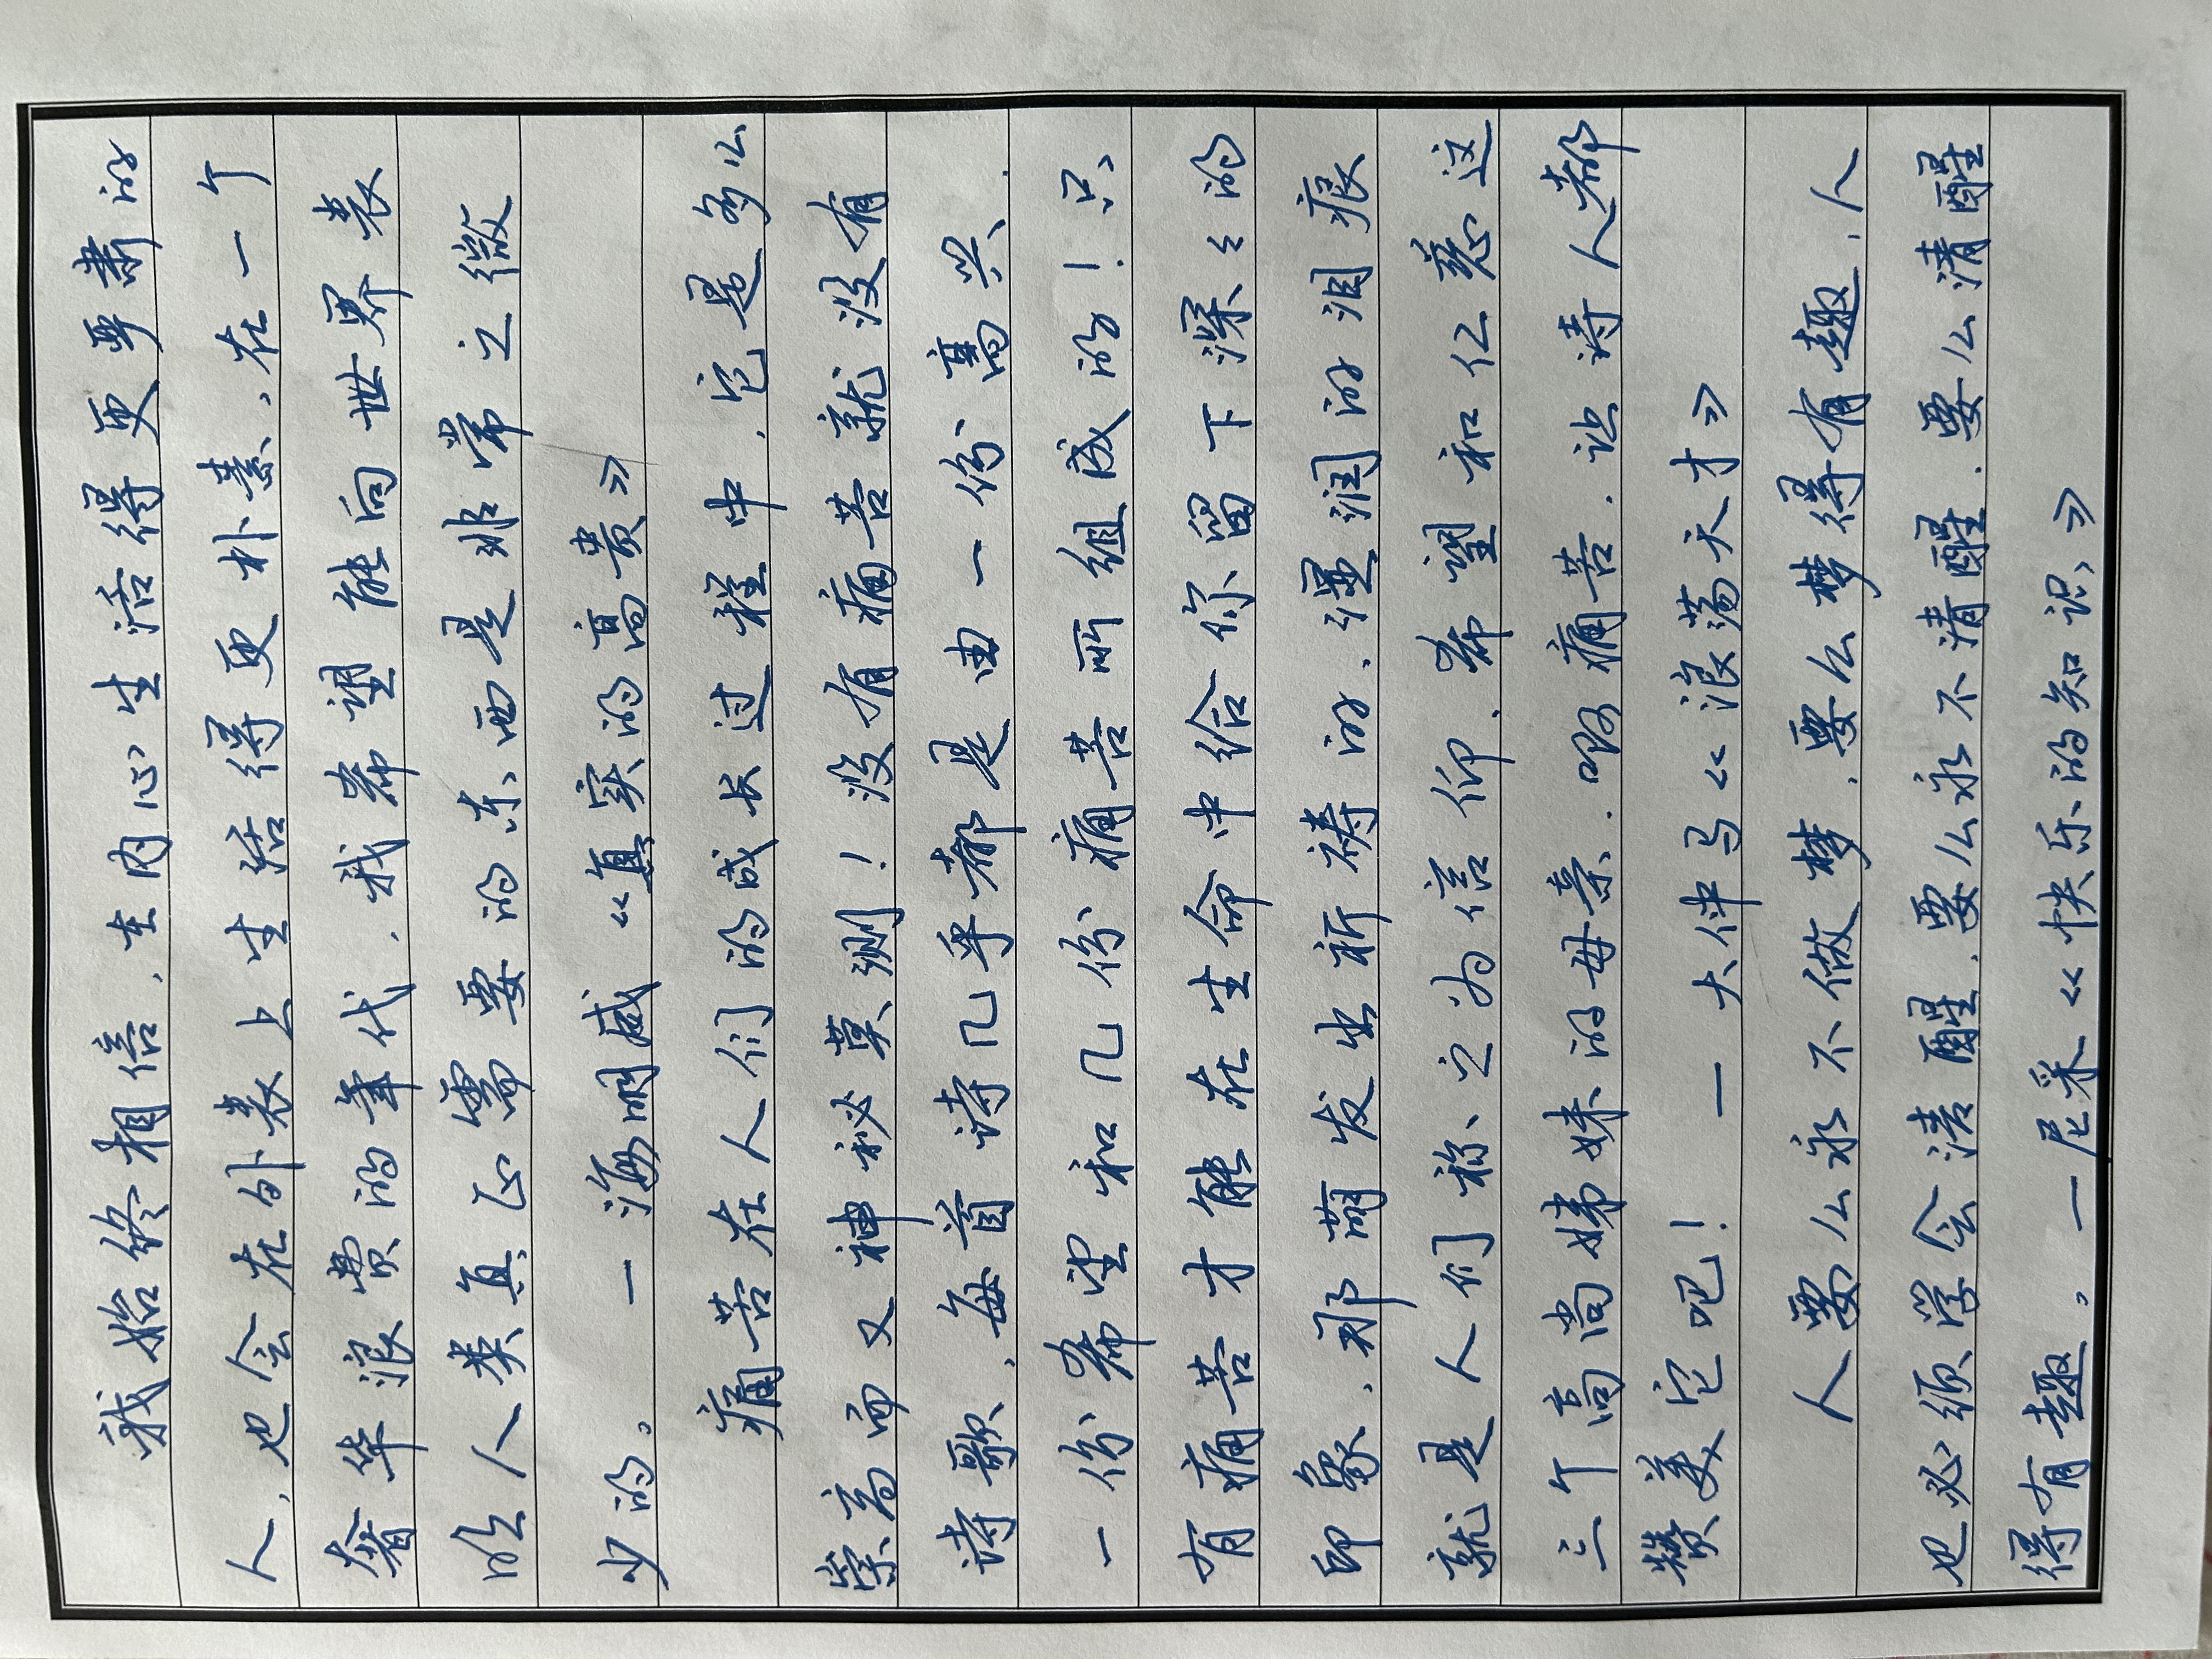 我始终相信，在内心生活得更严肃的
人，也会在外表上生活得更朴素，在一个
奢华浪费的年代，我希望能向世界表
明人类真正需要的东西是非常之微
少的。 一海明威《真实的高贵》
痛苦在人们的成长过程中，它是多么
崇高而又神秘莫测！没有痛苦就没有
诗歌，每首诗几乎都是由一份高兴、
一份希望和几份痛苦所组成的！只
有痛苦才能在生命中给你留下深々的
印象，那萌发出祈祷的、湿润的泪痕
就是人们称之为信仰、希望和仁慈这
三个高尚娣妹的母亲．啊痛苦．让诗人都
赞美它吧！ 一大仲马《浪荡天才》
人要么永不做梦，要么梦得有趣，人
也必须学会清醒，要么永不清醒，要么清醒
得有趣。 一尼采《快乐的知识》